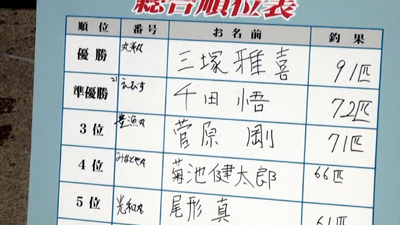 総合順位表
順位 番号 お名前 釣果
優勝 三塚雅喜 91匹
準優勝 21 えびす 千田悟 72匹
3位 豊漁丸 菅原剛 71匹
4位 みなと丸 菊池健太郎 66匹
5位 光和丸 尾形真 61匹